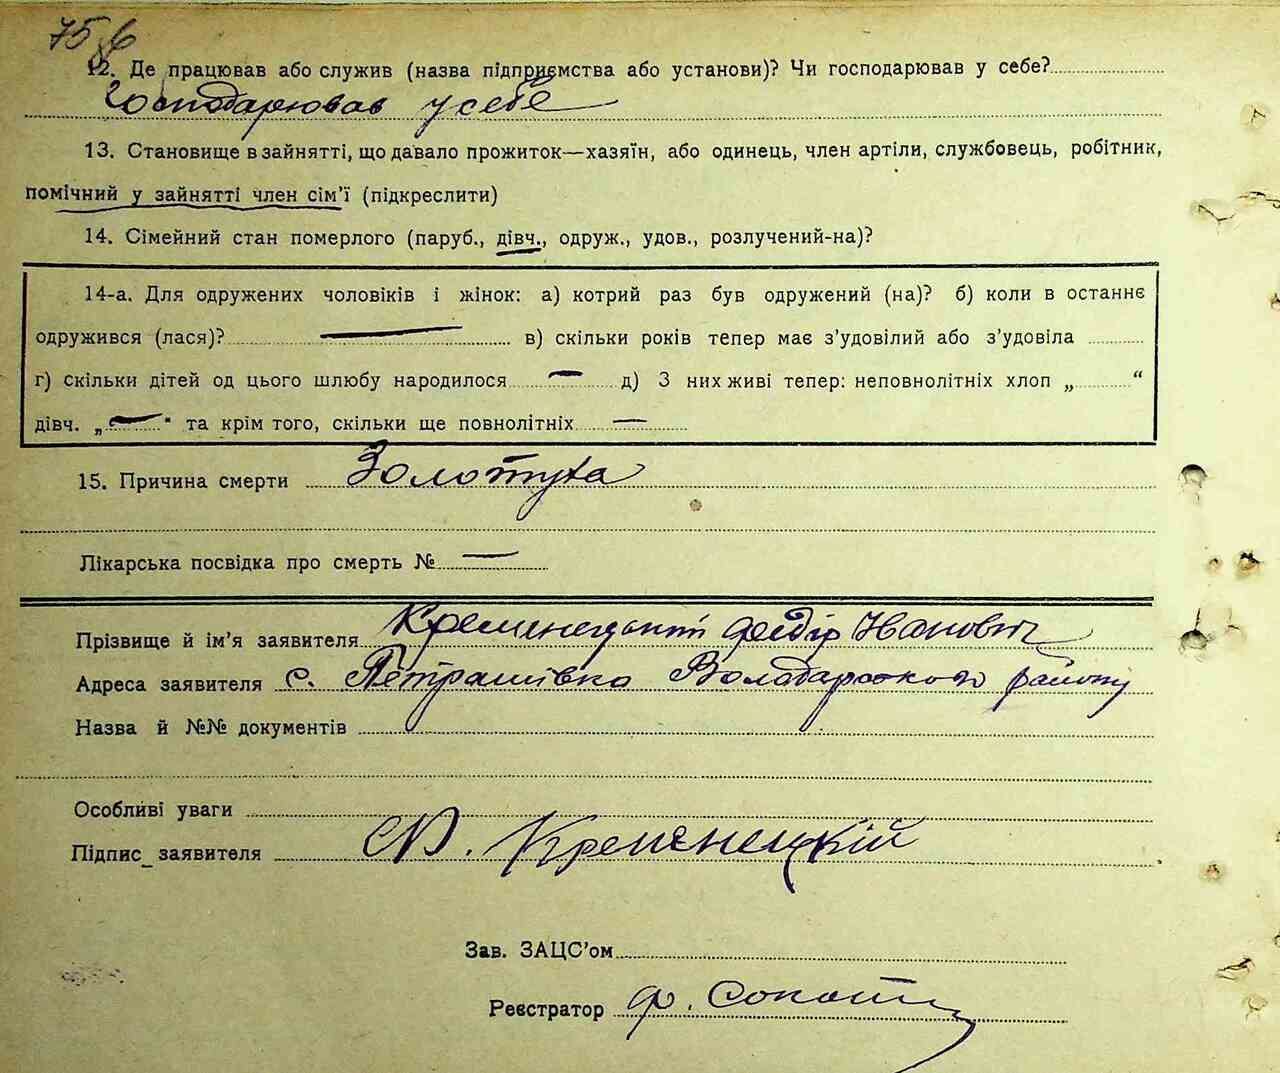 75
12. Де працював або служив (назва підприємства або установи)? Чи господарював у себе?
Господарював у себе
13. Становище в зайнятті, що давало прожиток—хазяїн, або одинець, член артіли, службовець, робітник,
помічний у зайнятті член сім'ї (підкреслити)
14. Сімейний стан померлого (паруб., дівч., одруж., удов., розлучений-на)?
14-а. Для одружених чоловіків і жінок: а) котрий раз був одружений (на)? б) коли в останнє
одружився (лася)? — в) скільки років тепер має з'удовілий або з'удовіла
г) скільки дітей од цього шлюбу народилося — д) З них живі тепер: неповнолітніх хлоп „ “
дівч. „ — " та крім того, скільки ще повнолітніх —
15. Причина смерти Золотуха
Лікарська посвідка про смерть № —
Прізвище й ім'я заявителя Кременецький Федір Іванович
Адреса заявителя с. Петрашівка Володарського району
Назва й №№ документів
Особливі уваги
Підпис заявителя Ф. Кременецкій
Зав. ЗАЦС'ом
Реєстратор Ф.